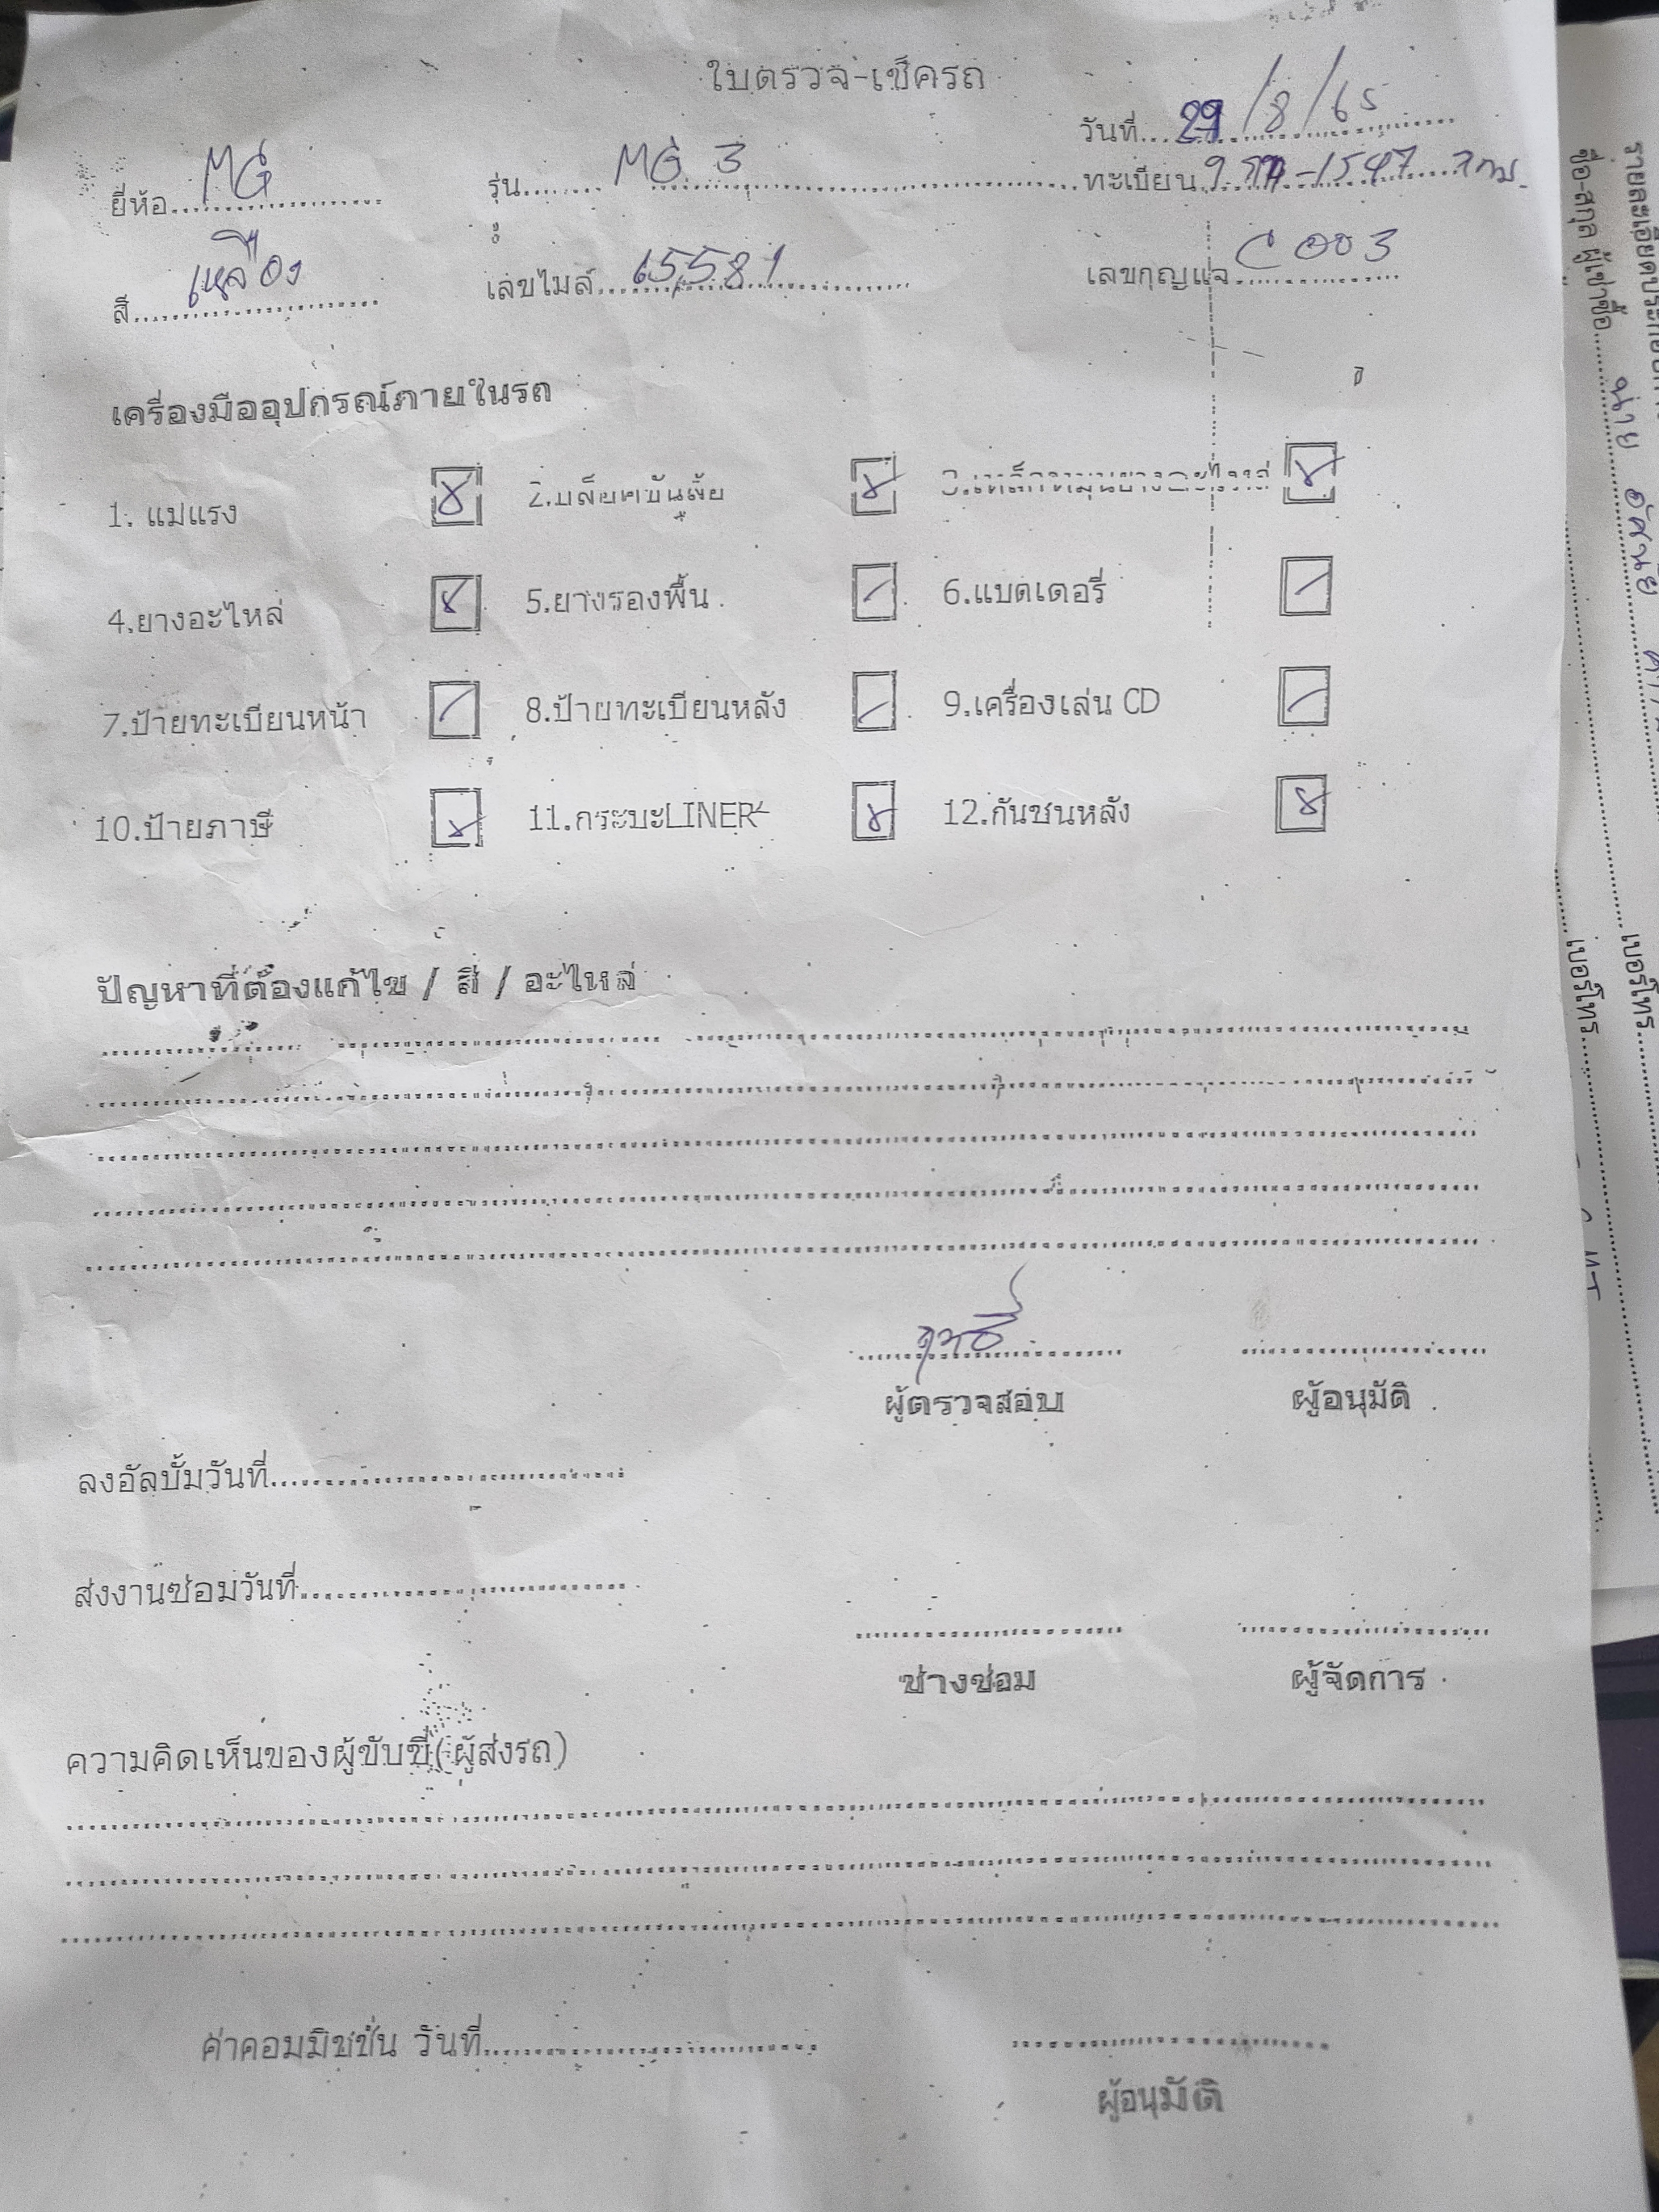 ใบตรวจ-เช็ครถ
วันที่ 29/8/65
ยี่ห้อ MG รุ่น MG 3 ทะเบียน -1547 กทม.
สี เหลือง เลขไมล์ 65,581 เลขกุญแจ C003
เครื่องมืออุปกรณ์ภายในรถ
1. แม่แรง 2.บล็อคขันล้อ
4.ยางอะไหล่ 5.ยางรองพื้น 6.แบตเตอรี่
7.ป้ายทะเบียนหน้า 8.ป้ายทะเบียนหลัง 9.เครื่องเล่น CD
10.ป้ายภาษี 11.กระบะLINER 12.กันชนหลัง
ปัญหาที่ต้องแก้ไข / สี / อะไหล่
ผู้ตรวจสอบ ผู้อนุมัติ
ลงอัลบั้มวันที่
ส่งงานซ่อมวันที่
ช่างซ่อม ผู้จัดการ
ความคิดเห็นของผู้ขับขี่(ผู้ส่งรถ)
ค่าคอมมิชชั่น วันที่
ผู้อนุมัติ
ชื่อ-สกุล ผู้เช่าซื้อ
เบอร์โทร
เบอร์โทร